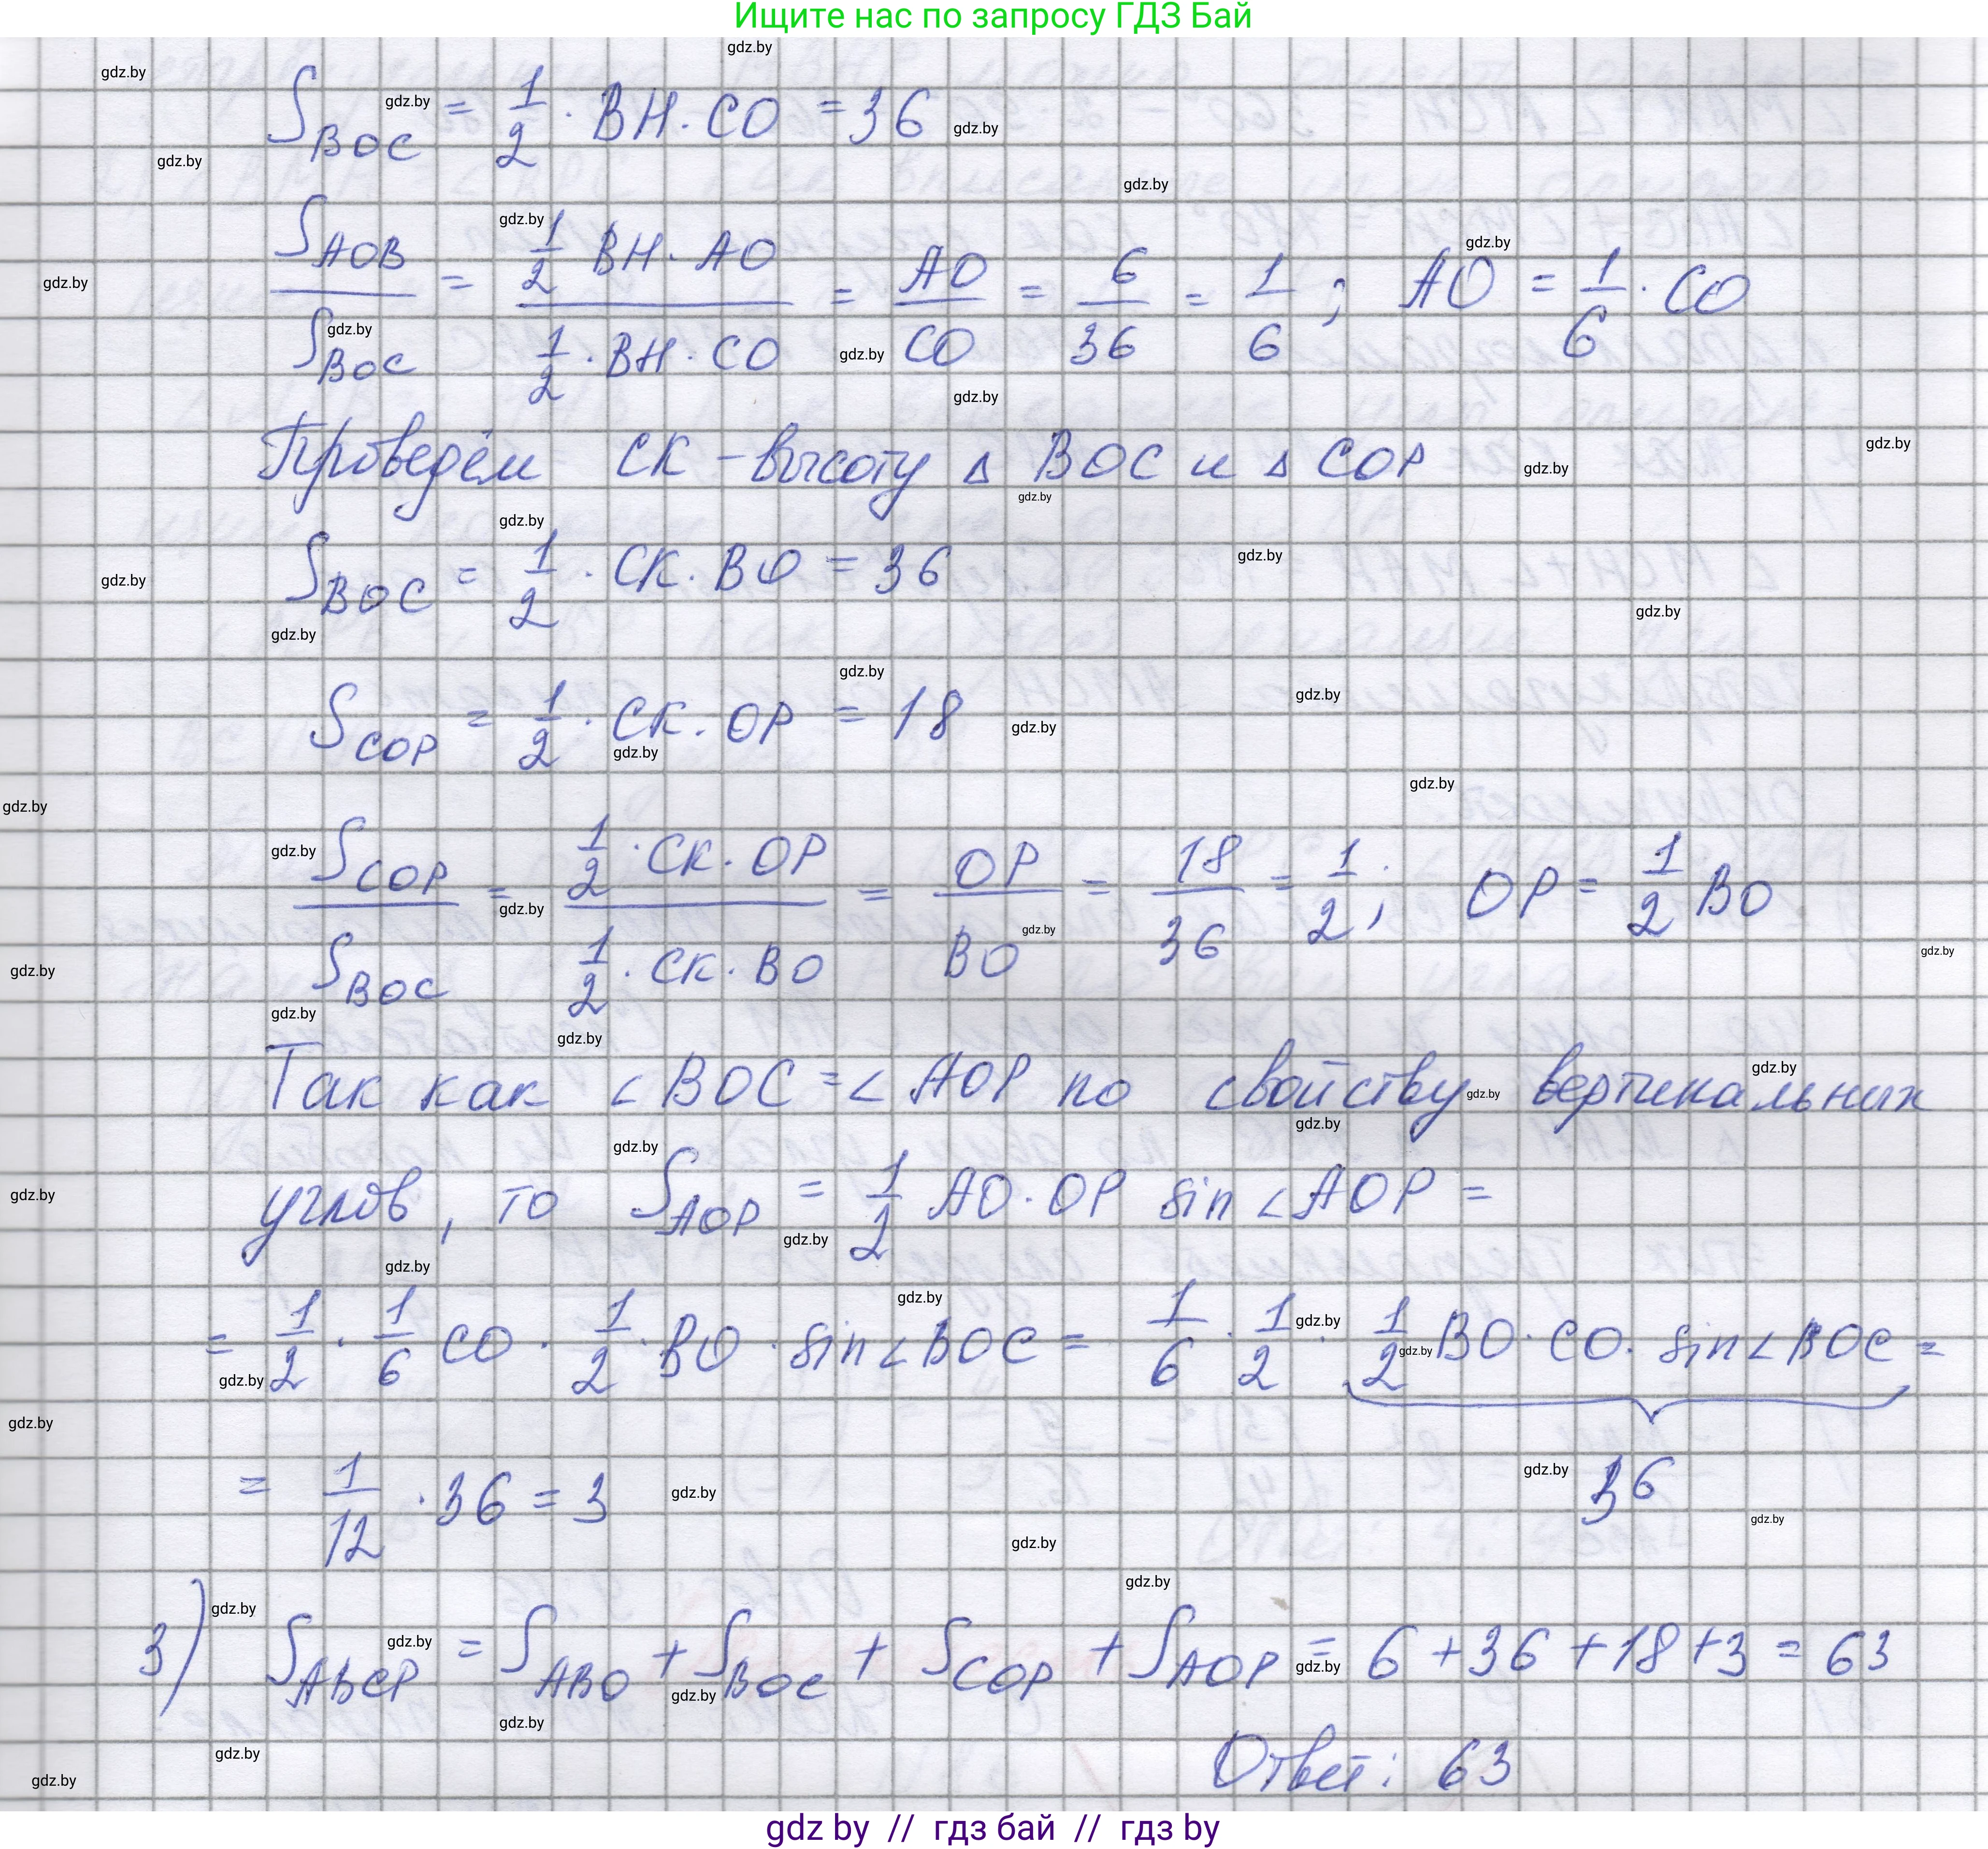 Ищите нас по запросу ГДЗ Бай
S_BOC = 1/2 · BH · CO = 36
S_AOB / S_BOC = (1/2 BH · AO) / (1/2 · BH · CO) = AO/CO = 6/36 = 1/6 ; AO = 1/6 · CO
Проведём CK - высоту △ BOC и △ COP
S_BOC = 1/2 · CK · BO = 36
S_COP = 1/2 · CK · OP = 18
S_COP / S_BOC = (1/2 · CK · OP) / (1/2 · CK · BO) = OP/BO = 18/36 = 1/2 ; OP = 1/2 BO
Так как ∠BOC = ∠AOP по свойству вертикальных
углов, то S_AOP = 1/2 AO · OP sin ∠AOP =
= 1/2 · 1/6 CO · 1/2 · BO · sin ∠BOC = 1/6 · 1/2 · 1/2 BO · CO · sin ∠BOC =
36
= 1/12 · 36 = 3
3) S_ABCP = S_ABO + S_BOC + S_COP + S_AOP = 6 + 36 + 18 + 3 = 63
Ответ: 63
gdz by // гдз бай // гдз by